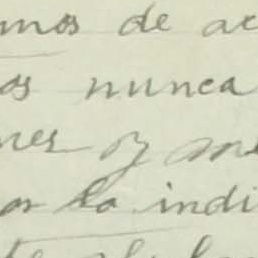 mos de ac
os nunca
nes y an
or la indi